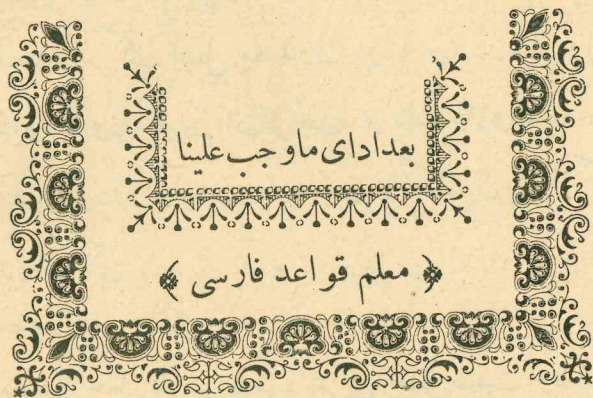 بعدادای ماوجب علینا
معلم قواعد فارسی